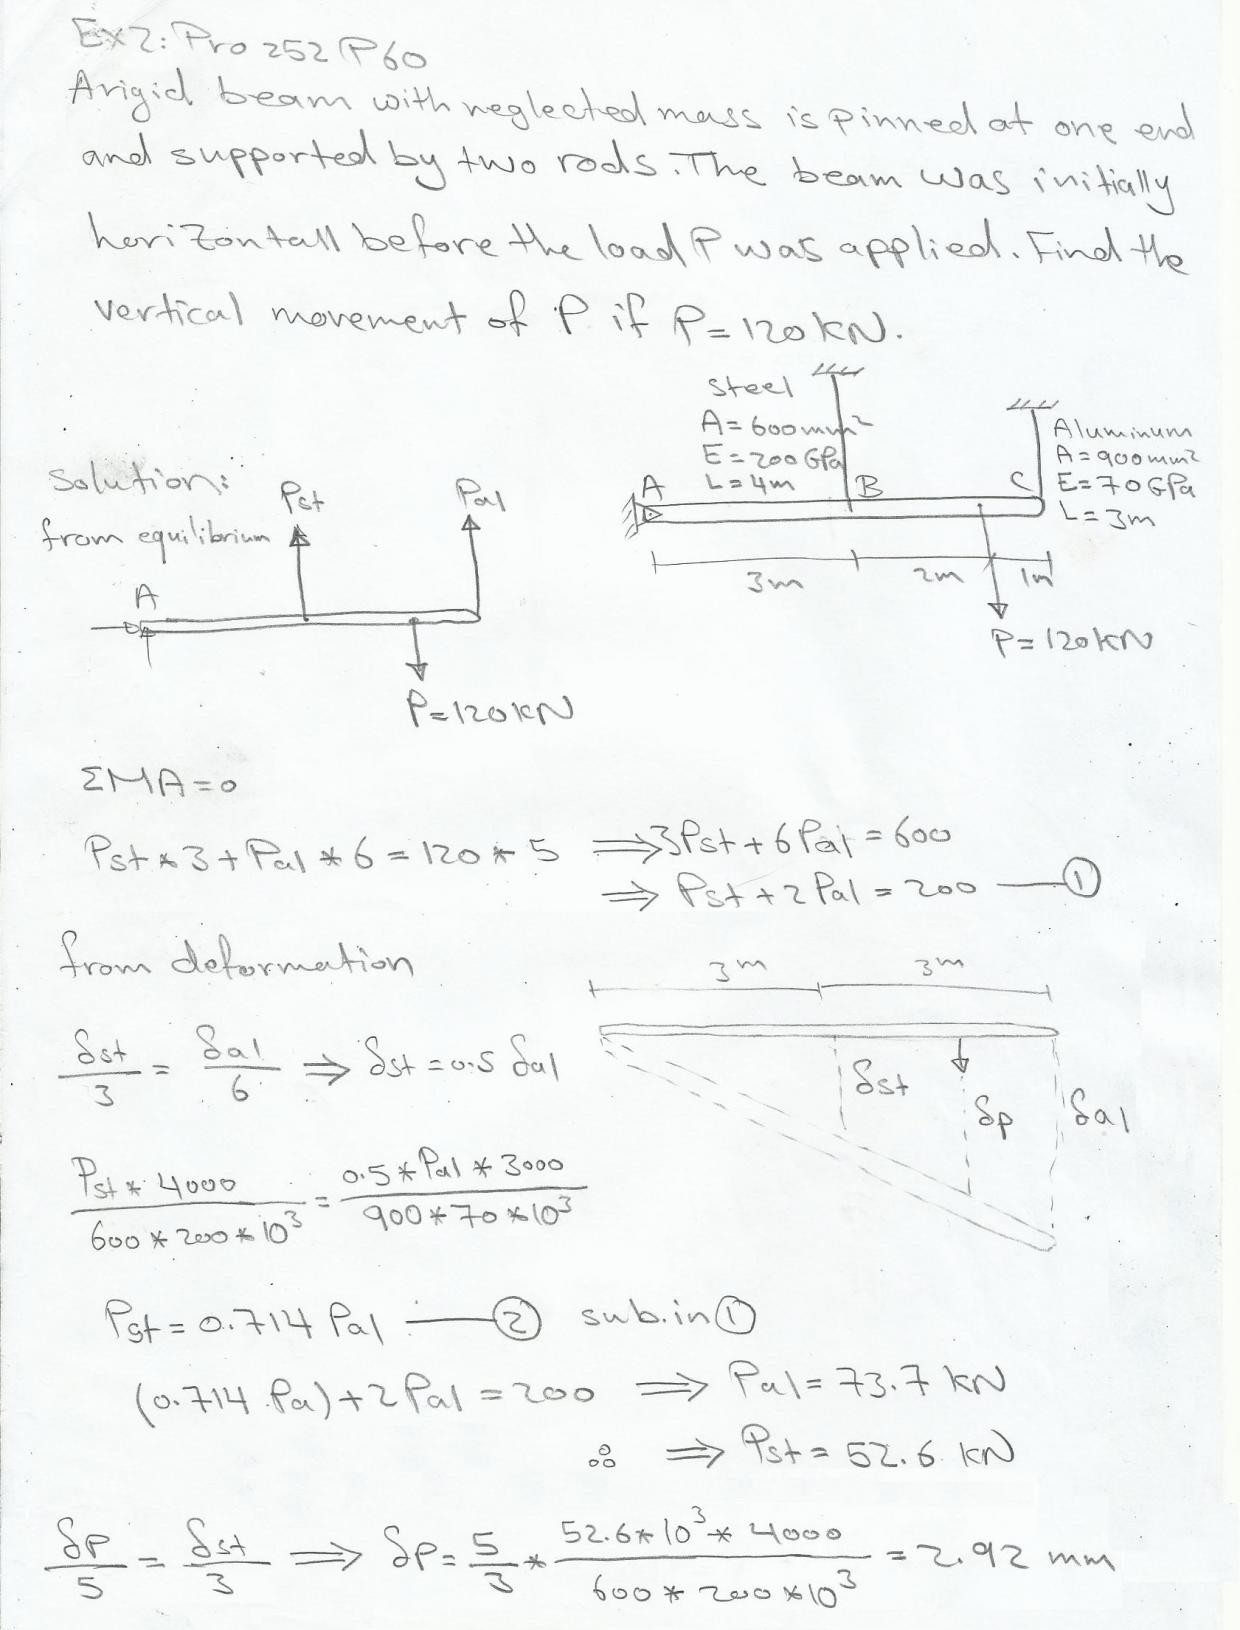 Ex2: Pro 252 P60
A rigid beam with neglected mass is pinned at one end
and supported by two rods. The beam was initially
horizontall before the load P was applied. Find the
vertical movement of P if P = 120 kN.
Steel
A = 600 mm²
E = 200 GPa
L = 4m
Aluminum
A = 900 mm²
E = 70 GPa
L = 3m
A
B
C
3m
2m
1m
P = 120 kN
Solution:
from equilibrium
Pst
Pal
A
P = 120 kN
ΣMA = 0
Pst * 3 + Pal * 6 = 120 * 5 ⟹ 3Pst + 6Pal = 600
⟹ Pst + 2Pal = 200 — ①
from deformation
3m
3m
δst/3 = δal/6 ⟹ δst = 0.5 δal
δst
δp
δal
Pst * 4000 / 600 * 200 * 10³ = 0.5 * Pal * 3000 / 900 * 70 * 10³
Pst = 0.714 Pal — ② sub. in ①
(0.714 Pa) + 2Pal = 200 ⟹ Pal = 73.7 kN
∴ ⟹ Pst = 52.6 kN
δP/5 = δst/3 ⟹ δP = 5/3 * 52.6 * 10³ * 4000 / 600 * 200 * 10³ = 2.92 mm